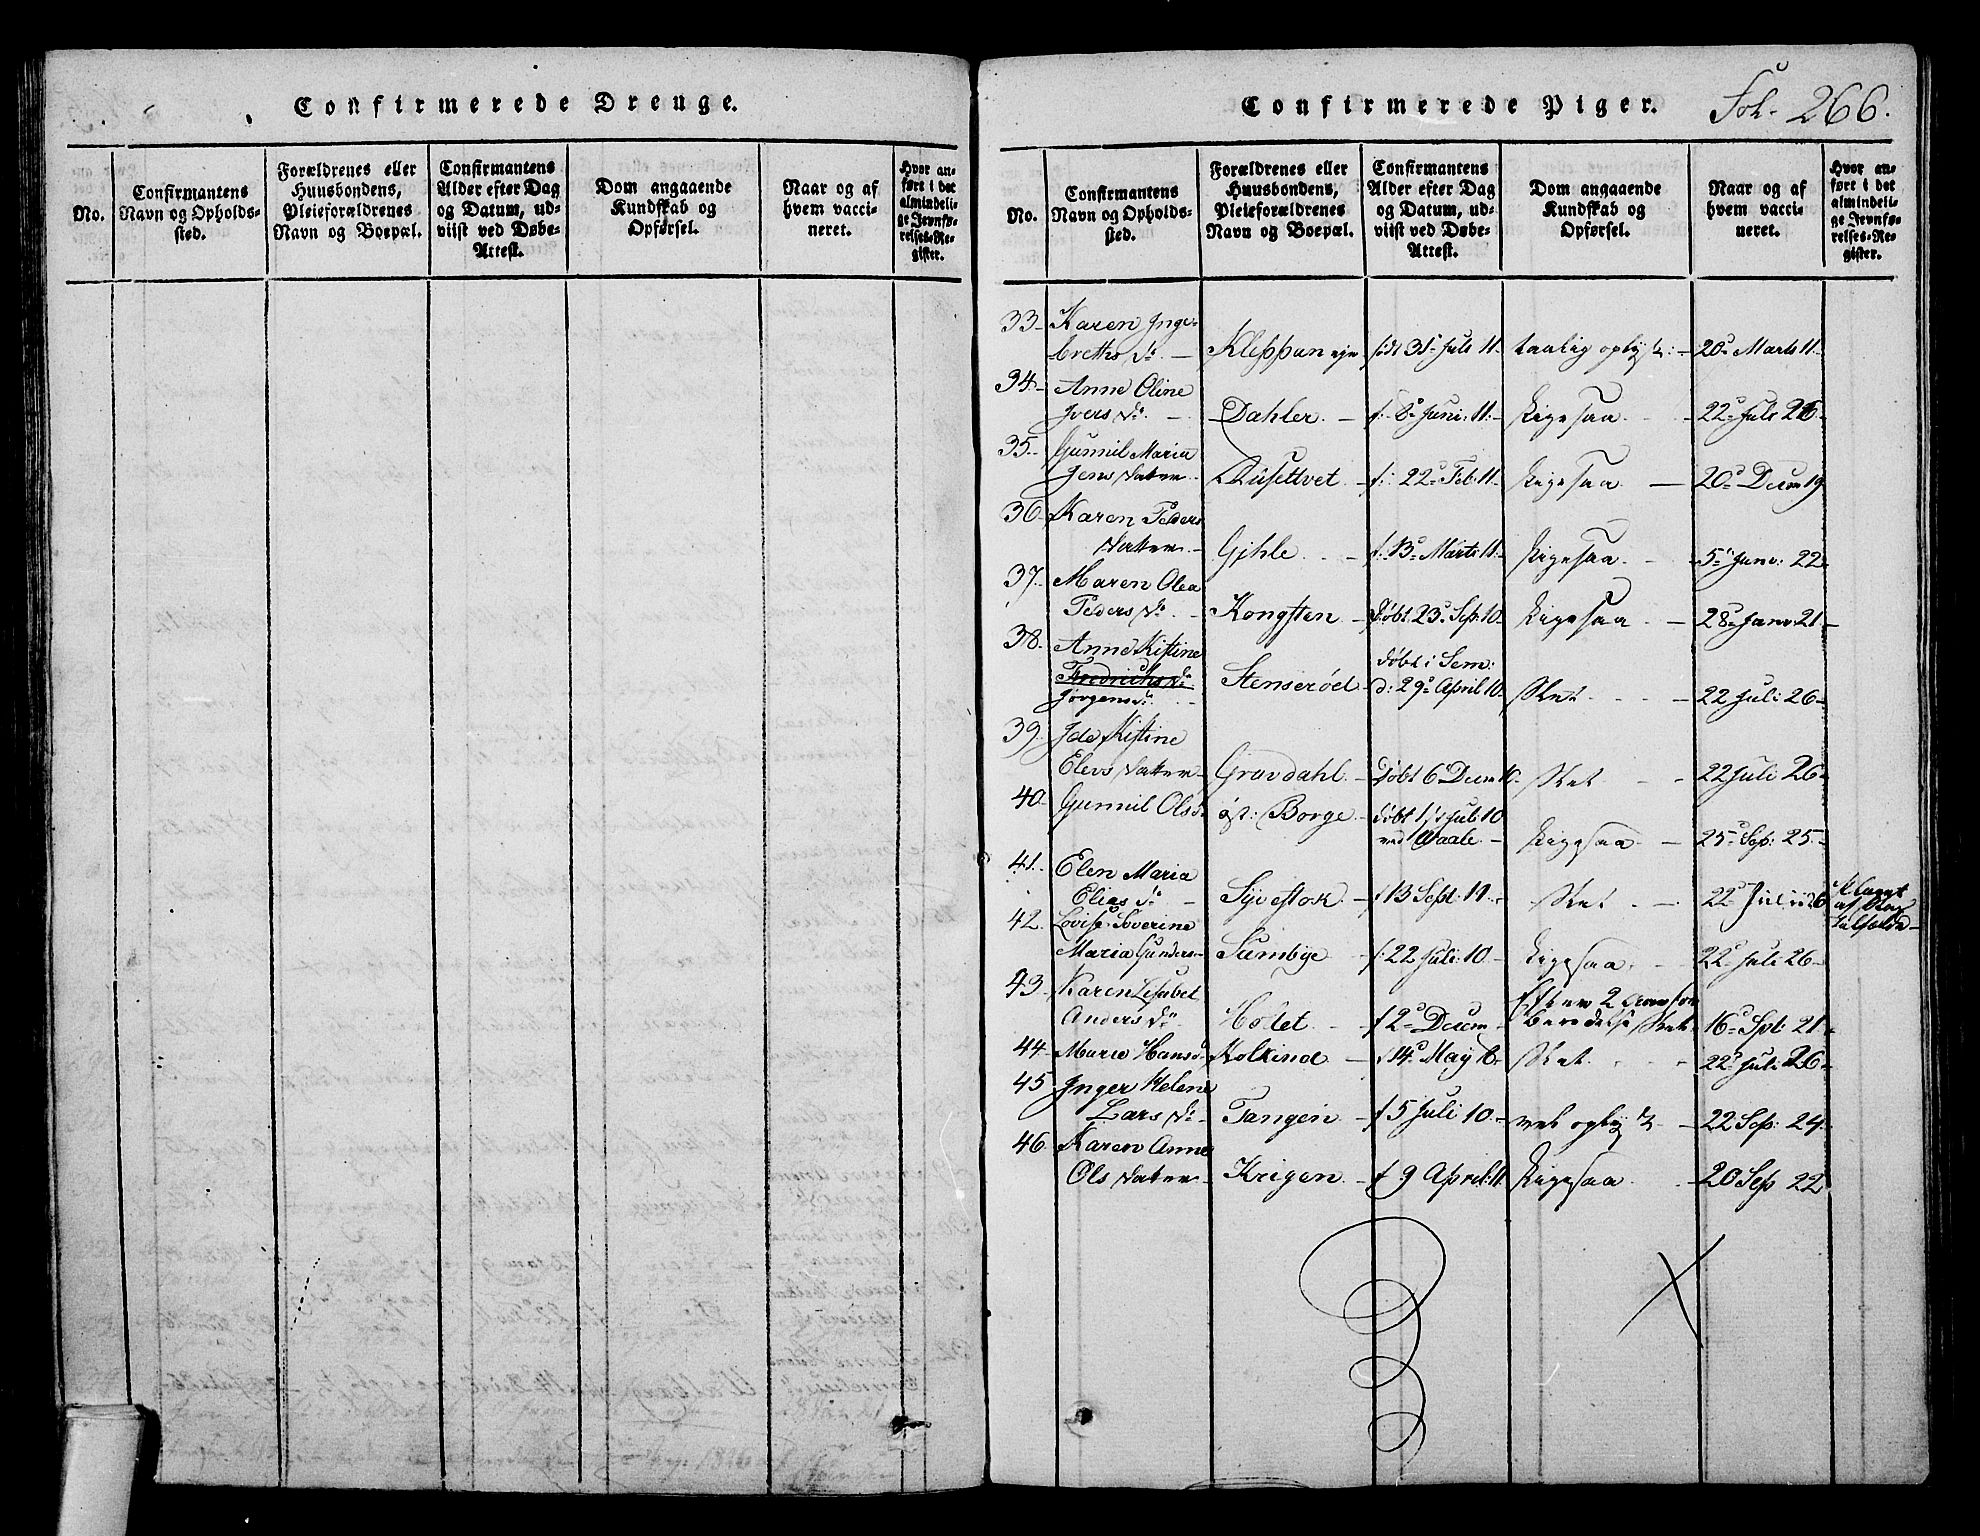 Confirmerede Drenge.
No.
Confirmantens
Navn og Opholds-
sted.
Forældrenes eller
Huusbondens,
Pleieforældrenes
Navn og Boepæl.
Confirmantens
Alder efter Dag
og Datum, ud-
viist ved Døbe-
Attest.
Dom angaaende
Kundskab og
Opførsel.
Naar og af
hvem vacci-
neret.
Hvor an-
ført i det
almindeli-
ge Jevnfø-
relses-Re-
gister.
Confirmerede Piger.
Fol. 266.
No.
Confirmantens
Navn og Opholds-
sted.
Forældrenes eller
Huusbondens,
Pleieforældrenes
Navn og Boepæl.
Confirmantens
Alder efter Dag
og Datum, ud-
viist ved Døbe-
Attest.
Dom angaaende
Kundskab og
Opførsel.
Naar og af
hvem vacci-
neret.
Hvor an-
ført i det
almindeli-
ge Jevnfø-
relses-Re-
gister.
33. Karen Inge-
brethsd. Kleppan født 31 Juli 11. taalig oplyst 20 Marts 11.
34. Anne Oline
Iversd. Dahler f. 8 Juni 11. Ligesaa 22 Juli 26
35. Gunnil Maria
Jens Datter Buskttvet f. 22 Feb. 11. Ligesaa 20 Decm 19
36. Karen Peders
Datter Gjhle f. 13 Marts 11. Ligesaa 5 Janv. 22
37. Maren Olea
Pedersd. Kongsten Døbt 23 Sep. 10. Ligesaa 28 Janv. 21
38. Anne Kistine
Fredrichsd.
Jørgensd. Stenserød døbt i Sem:
d. 29 April 10. Slet 22 Juli 26
39. Ida Kistine
Elevs Datter Gravdahl Døbt 6 Decm 10. Slet 22 Juli 26
40. Gunnil Olsd. øst. Borge døbt 1 Juli 10
ved Waale Ligesaa 25 Sep. 25.
41. Elen Maria
Eliasd. Syvestok f 13 Sept. 11 Slet 22 Juli 26
42. Lovise Severine
Maria Gunders Sumbye f. 22 Juli 10 Ligesaa 22 Juli 26
43. Karen Lisabet
Andersd. Holet f 2 Decm Efter 2
beredelse Slet 16 Spt. 21
44. Marie Hansd. Kolkind f 14 May 8 Slet 22 Juli 26
45 Inger Helene
Larsd. Tangen f 5 Juli 10 vel oplyst 22 Sep. 24
46. Karen Anne
Ols Datter Krigen f 9 April 11 Ligesaa 20 Sep 22